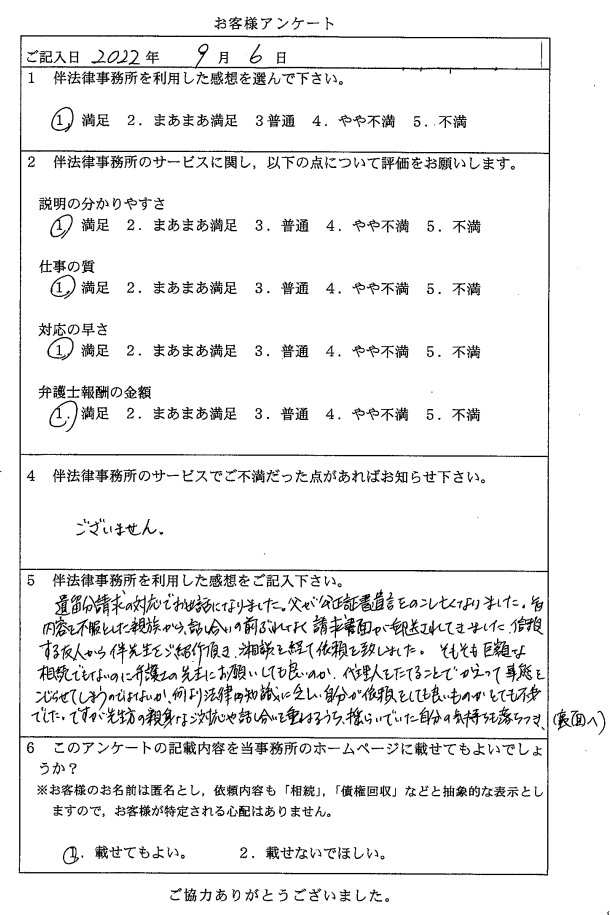 お客様アンケート
ご記入日 2022年 9月 6日
1 伴法律事務所を利用した感想を選んで下さい。
1. 満足 2. まあまあ満足 3 普通 4. やや不満 5. 不満
2 伴法律事務所のサービスに関し,以下の点について評価をお願いします。
説明の分かりやすさ
1. 満足 2. まあまあ満足 3. 普通 4. やや不満 5. 不満
仕事の質
1. 満足 2. まあまあ満足 3. 普通 4. やや不満 5. 不満
対応の早さ
1. 満足 2. まあまあ満足 3. 普通 4. やや不満 5. 不満
弁護士報酬の金額
1. 満足 2. まあまあ満足 3. 普通 4. やや不満 5. 不満
4 伴法律事務所のサービスでご不満だった点があればお知らせ下さい。
ございません。
5 伴法律事務所を利用した感想をご記入下さい。
遺留分請求の対応でお世話になりました。父が公正証書遺言をのこし亡くなりました。
内容を不服とした親族から、話し合いの前ぶれもなく請求書面が郵送されてきました。信頼
する友人から伴先生をご紹介頂き、相談を経て依頼を致しました。そもそも巨額な
相続でもないのに弁護士の先生にお願いしても良いのか、代理人をたてることでかえって事態を
こじらせてしまうのではないか、何より法律的知識に乏しい自分が依頼をしても良いものかとても不安
でした。ですが先生方の親身なご対応や話し合いを重ねるうち、揺らいでいた自分の気持ちも落ちつき、(裏面へ)
6 このアンケートの記載内容を当事務所のホームページに載せてもよいでしょ
うか?
※お客様のお名前は匿名とし,依頼内容も「相続」,「債権回収」などと抽象的な表示とし
ますので,お客様が特定される心配はありません。
1. 載せてもよい。 2. 載せないでほしい。
ご協力ありがとうございました。